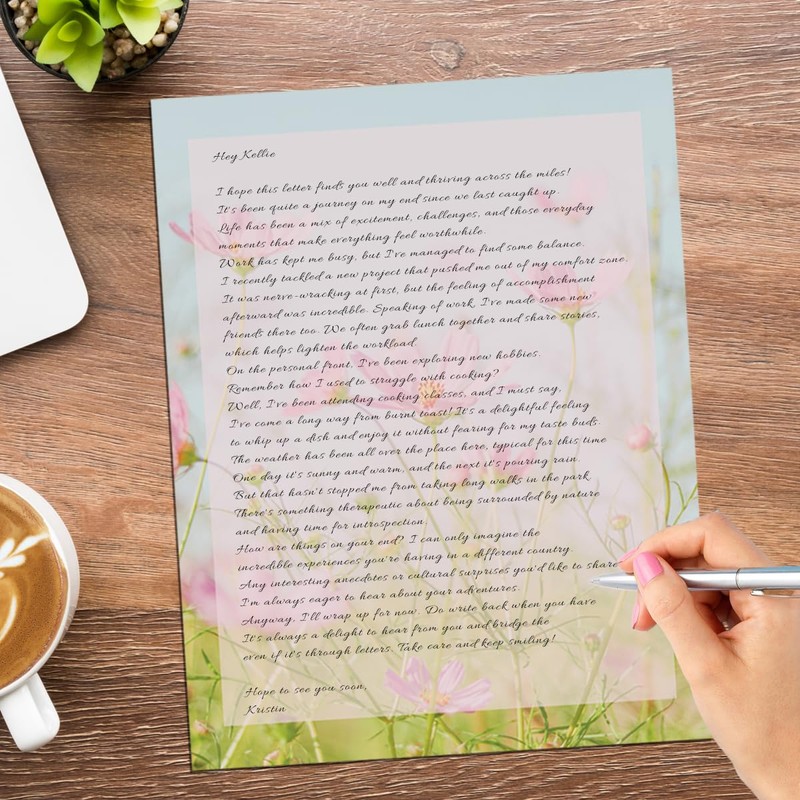 Hey Kellie
I hope this letter finds you well and thriving across the miles!
It's been quite a journey on my end since we last caught up.
Life has been a mix of excitement, challenges, and those everyday
moments that make everything feel worthwhile.
Work has kept me busy, but I've managed to find some balance.
I recently tackled a new project that pushed me out of my comfort zone.
It was nerve-wracking at first, but the feeling of accomplishment
afterward was incredible. Speaking of work, I've made some new
friends there too. We often grab lunch together and share stories,
which helps lighten the workload.
On the personal front, I've been exploring new hobbies.
Remember how I used to struggle with cooking?
Well, I've been attending cooking classes, and I must say,
I've come a long way from burnt toast! It's a delightful feeling
to whip up a dish and enjoy it without fearing for my taste buds.
The weather has been all over the place here, typical for this time
One day it's sunny and warm, and the next it's pouring rain.
But that hasn't stopped me from taking long walks in the park
There's something therapeutic about being surrounded by nature
and having time for introspection.
How are things on your end? I can only imagine the
incredible experiences you're having in a different country.
Any interesting anecdotes or cultural surprises you'd like to share
I'm always eager to hear about your adventures.
Anyway, I'll wrap up for now. Do write back when you have
It's always a delight to hear from you and bridge the
even if it's through letters. Take care and keep smiling!
Hope to see you soon,
Kristin